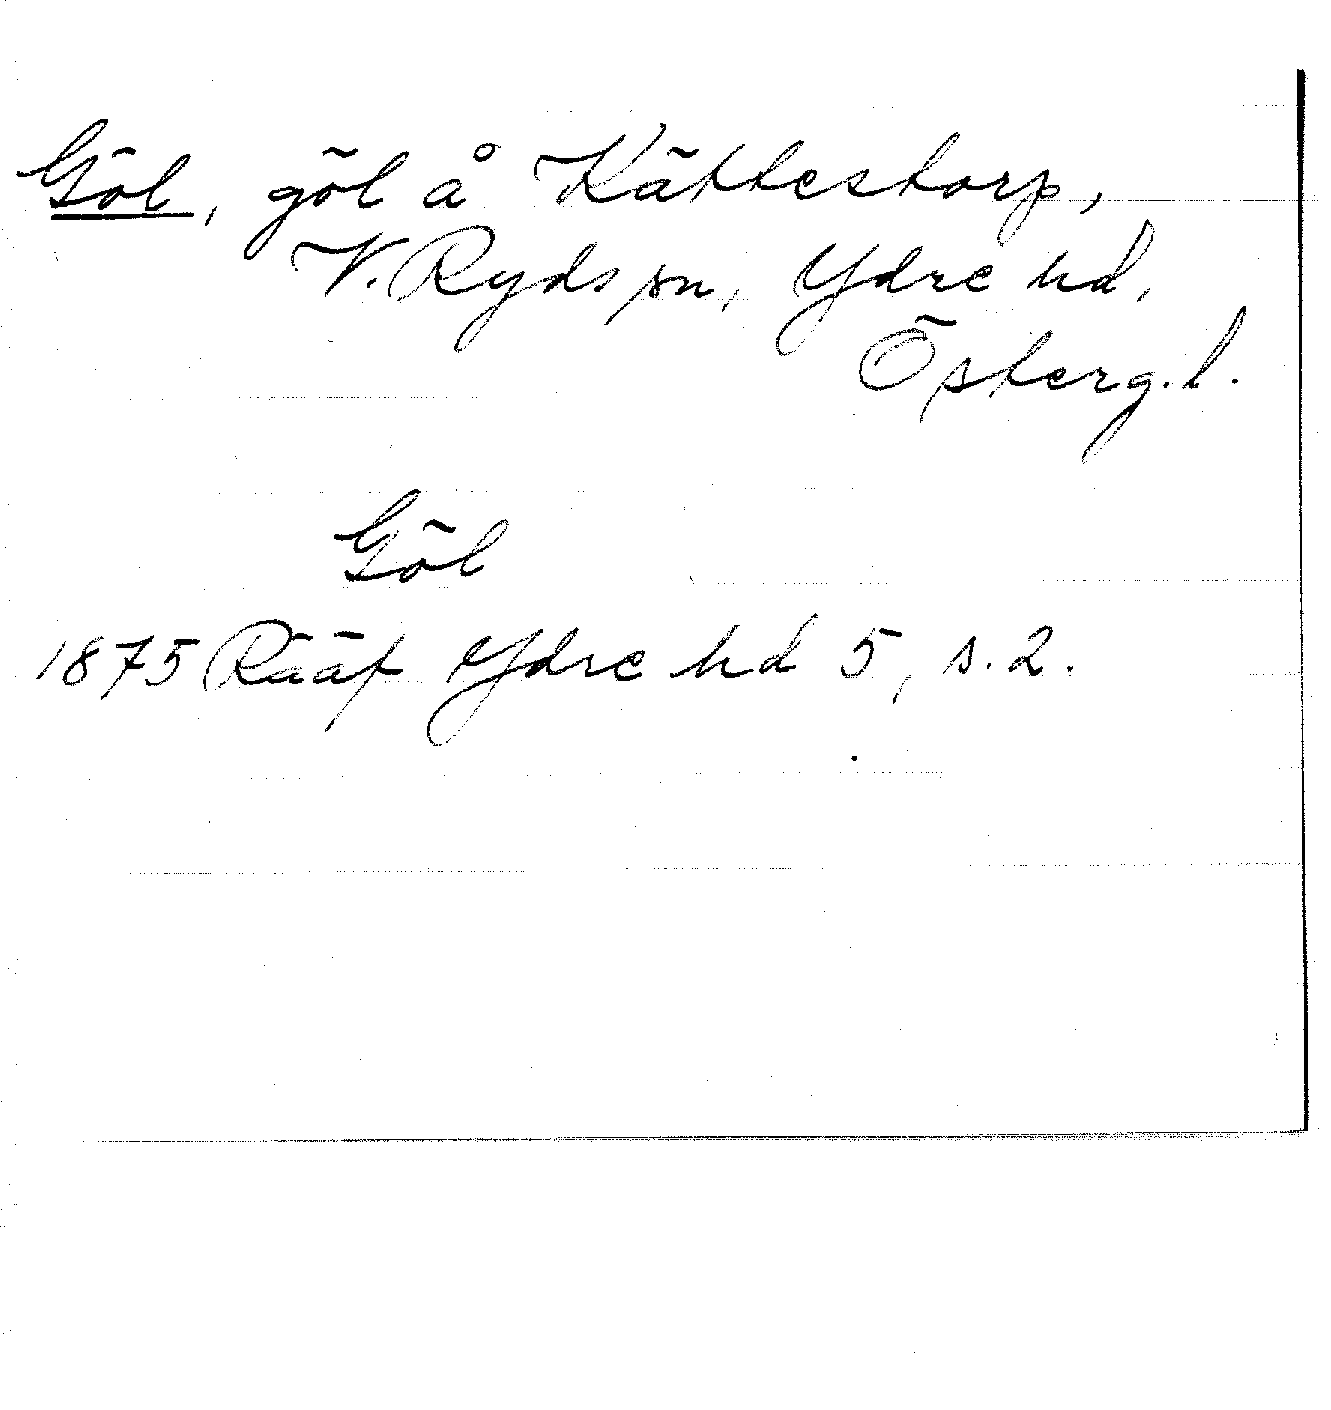 Göl, göl å Kättestorp,
V. Ryds sn, Ydre hd,
Österg. l.
Göl
1875 Rääf Ydre hd 5, s. 2.